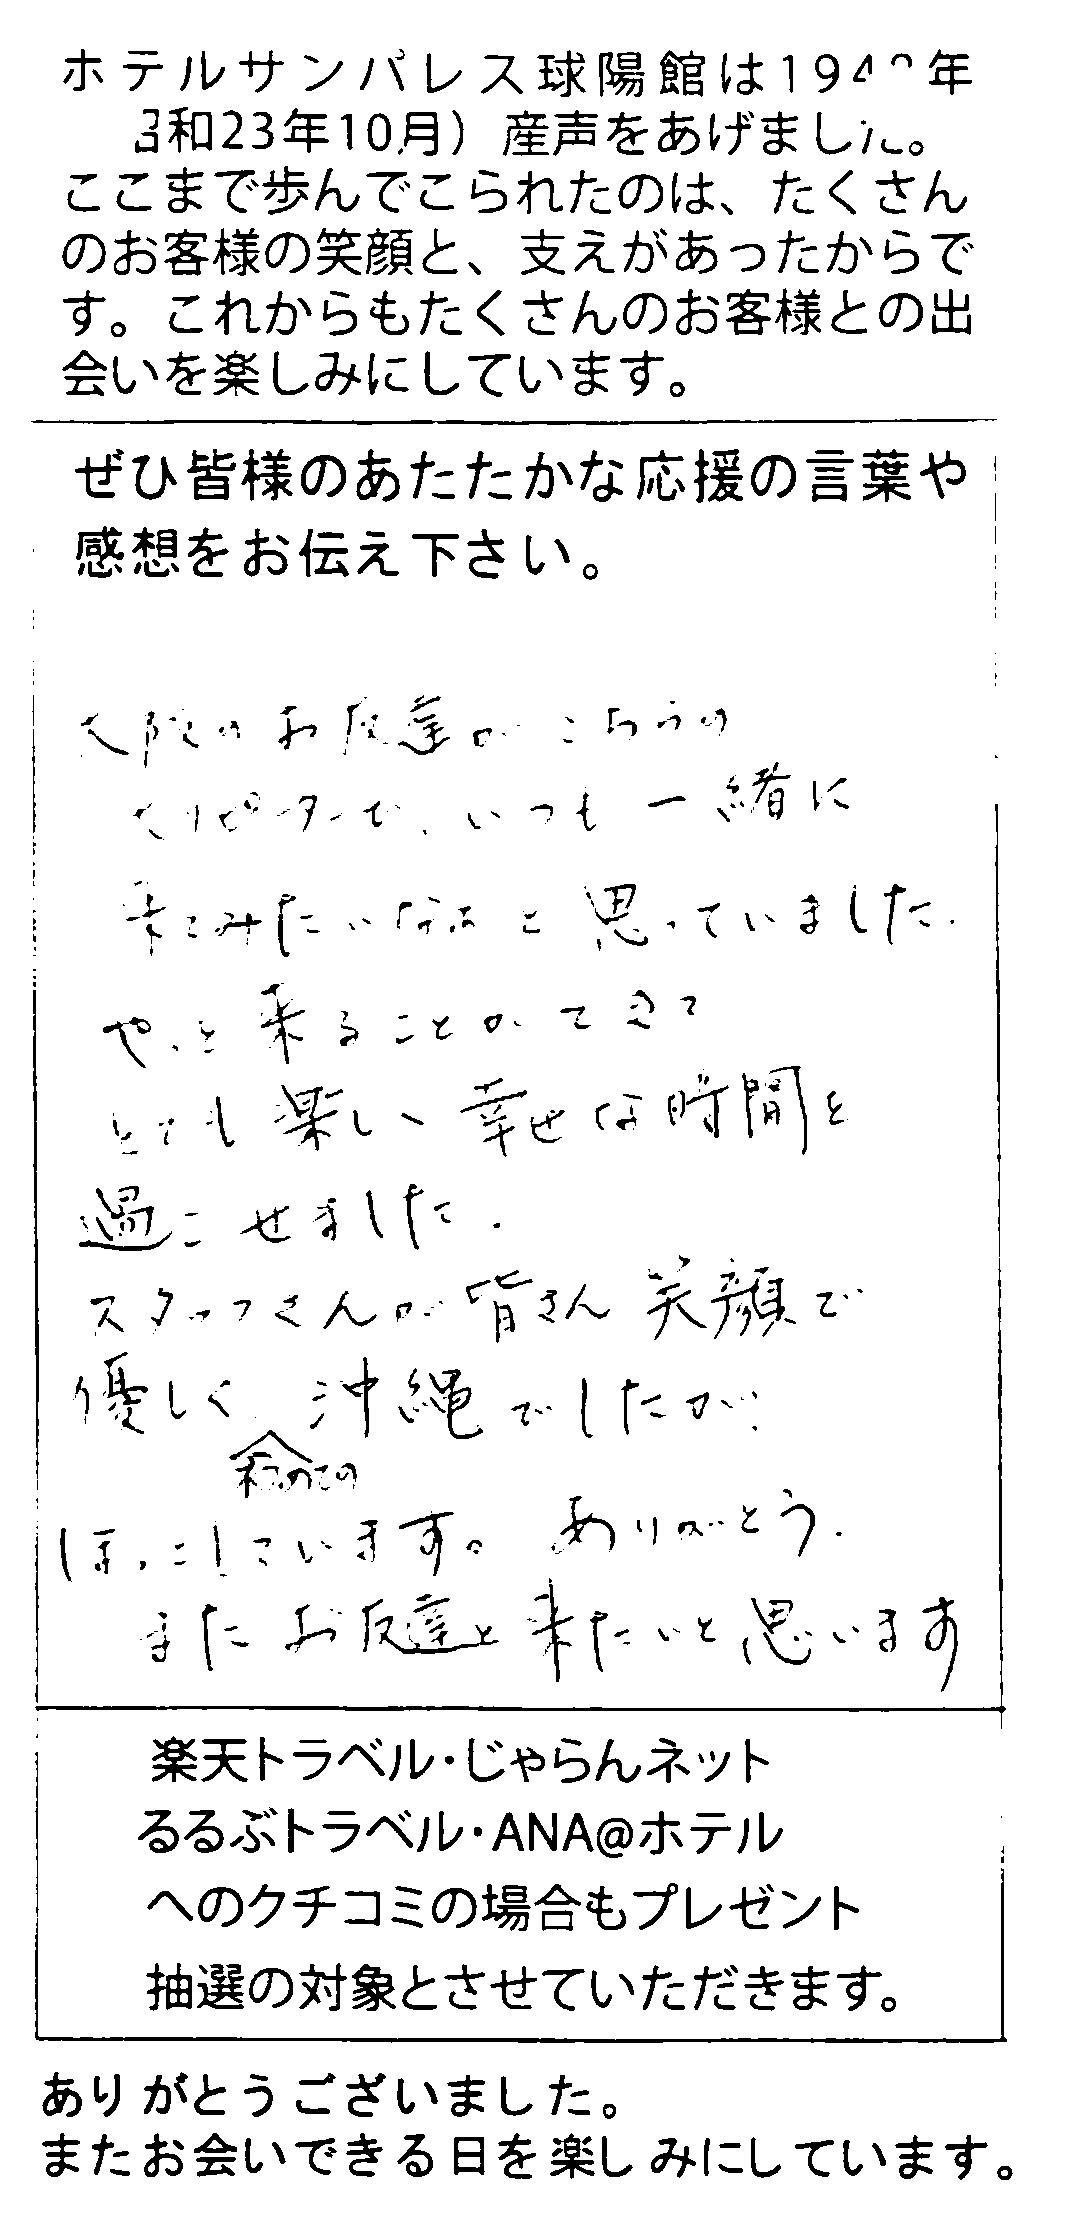 ホテルサンパレス球陽館は1948年
昭和23年10月）産声をあげました。
ここまで歩んでこられたのは、たくさん
のお客様の笑顔と、支えがあったからで
す。これからもたくさんのお客様との出
会いを楽しみにしています。
ぜひ皆様のあたたかな応援の言葉や
感想をお伝え下さい。
大阪のお友達がこちらの
リピーターで、いつも一緒に
来てみたいなぁと思っていました.
やっと来ることができて
とても楽しい幸せな時間を
過ごせました.
スタッフさんが皆さん笑顔で
優しく 沖縄でしたが、
初めての
ほっこしています。ありがとう.
またお友達と来たいと思います
楽天トラベル・じゃらんネット
るるぶトラベル・ANA@ホテル
へのクチコミの場合もプレゼント
抽選の対象とさせていただきます。
ありがとうございました。
またお会いできる日を楽しみにしています。